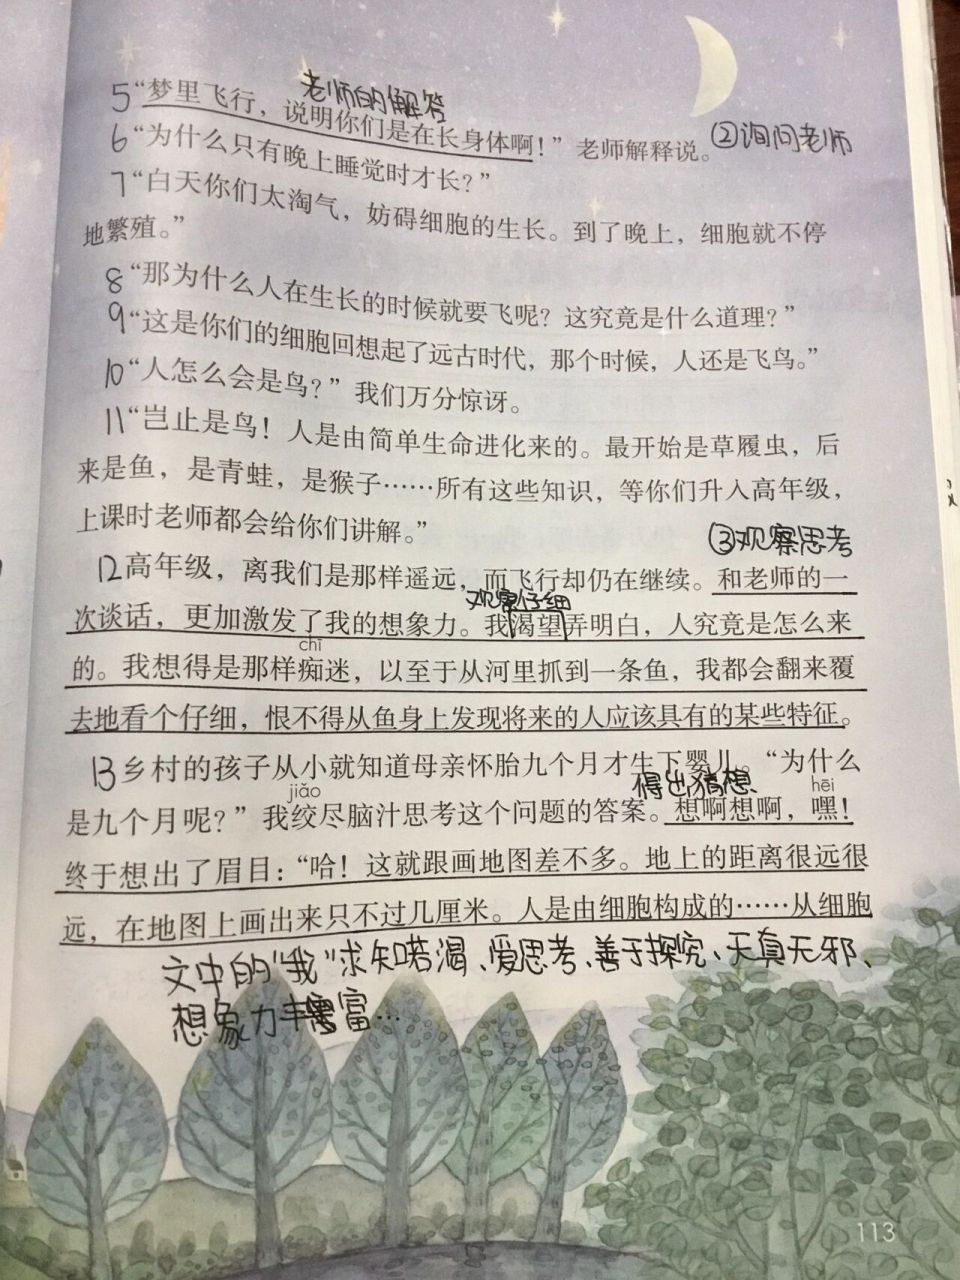 老师的解答
5“梦里飞行，说明你们是在长身体啊！”老师解释说。
②询问老师
6“为什么只有晚上睡觉时才长？”
7“白天你们太淘气，妨碍细胞的生长。到了晚上，细胞就不停
地繁殖。”
8“那为什么人在生长的时候就要飞呢？这究竟是什么道理？”
9“这是你们的细胞回想起了远古时代，那个时候，人还是飞鸟。”
10“人怎么会是鸟？”我们万分惊讶。
11“岂止是鸟！人是由简单生命进化来的。最开始是草履虫，后
来是鱼，是青蛙，是猴子……所有这些知识，等你们升入高年级，
上课时老师都会给你们讲解。”
③观察思考
12高年级，离我们是那样遥远，而飞行却仍在继续。和老师的一
观察仔细
次谈话，更加激发了我的想象力。我渴望弄明白，人究竟是怎么来
chī
的。我想得是那样痴迷，以至于从河里抓到一条鱼，我都会翻来覆
去地看个仔细，恨不得从鱼身上发现将来的人应该具有的某些特征。
13乡村的孩子从小就知道母亲怀胎九个月才生下婴儿。“为什么
jiǎo
得出猜想
hēi
是九个月呢？”我绞尽脑汁思考这个问题的答案。想啊想啊，嘿！
终于想出了眉目：“哈！这就跟画地图差不多。地上的距离很远很
远，在地图上画出来只不过几厘米。人是由细胞构成的……从细胞
文中的“我”求知若渴、爱思考、善于探究、天真无邪、
想象力丰富…
113